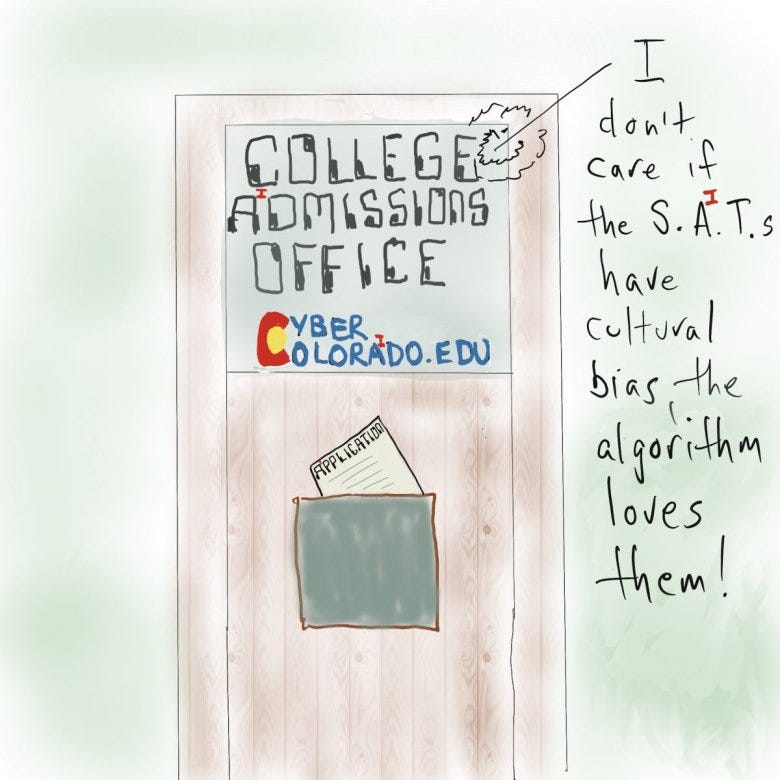 COLLEGE
AIDMISSIONS
OFFICE
CYBER
COLORAIDO.EDU
APPLICATION
I
don't
care if
the S.AI.T.s
have
cultural
bias, the
algorithm
loves
them!